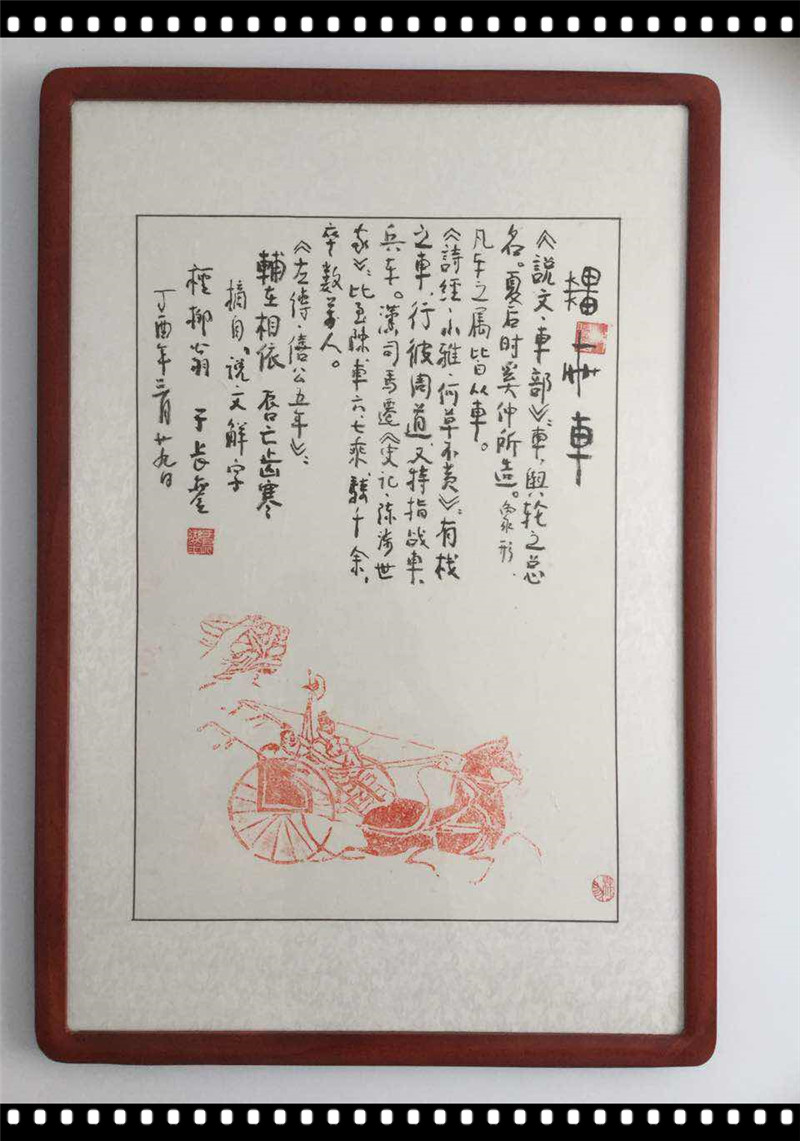 車
《説文·車部》:車,輿轮之总
名。夏后时奚仲所造。象形.
凡车之属皆从車。
《詩經·小雅·何草不黄》:有栈
之車,行彼周道,又特指战車,
兵车。漢司馬遷《史记·陈涉世
家》:比至陳,車六、七乘,騎千余,
卒数萬人。
《左传·僖公五年》:
輔车相依 唇亡齿寒
摘自《説文解字
柳翁 于长
丁酉年三月廿九日